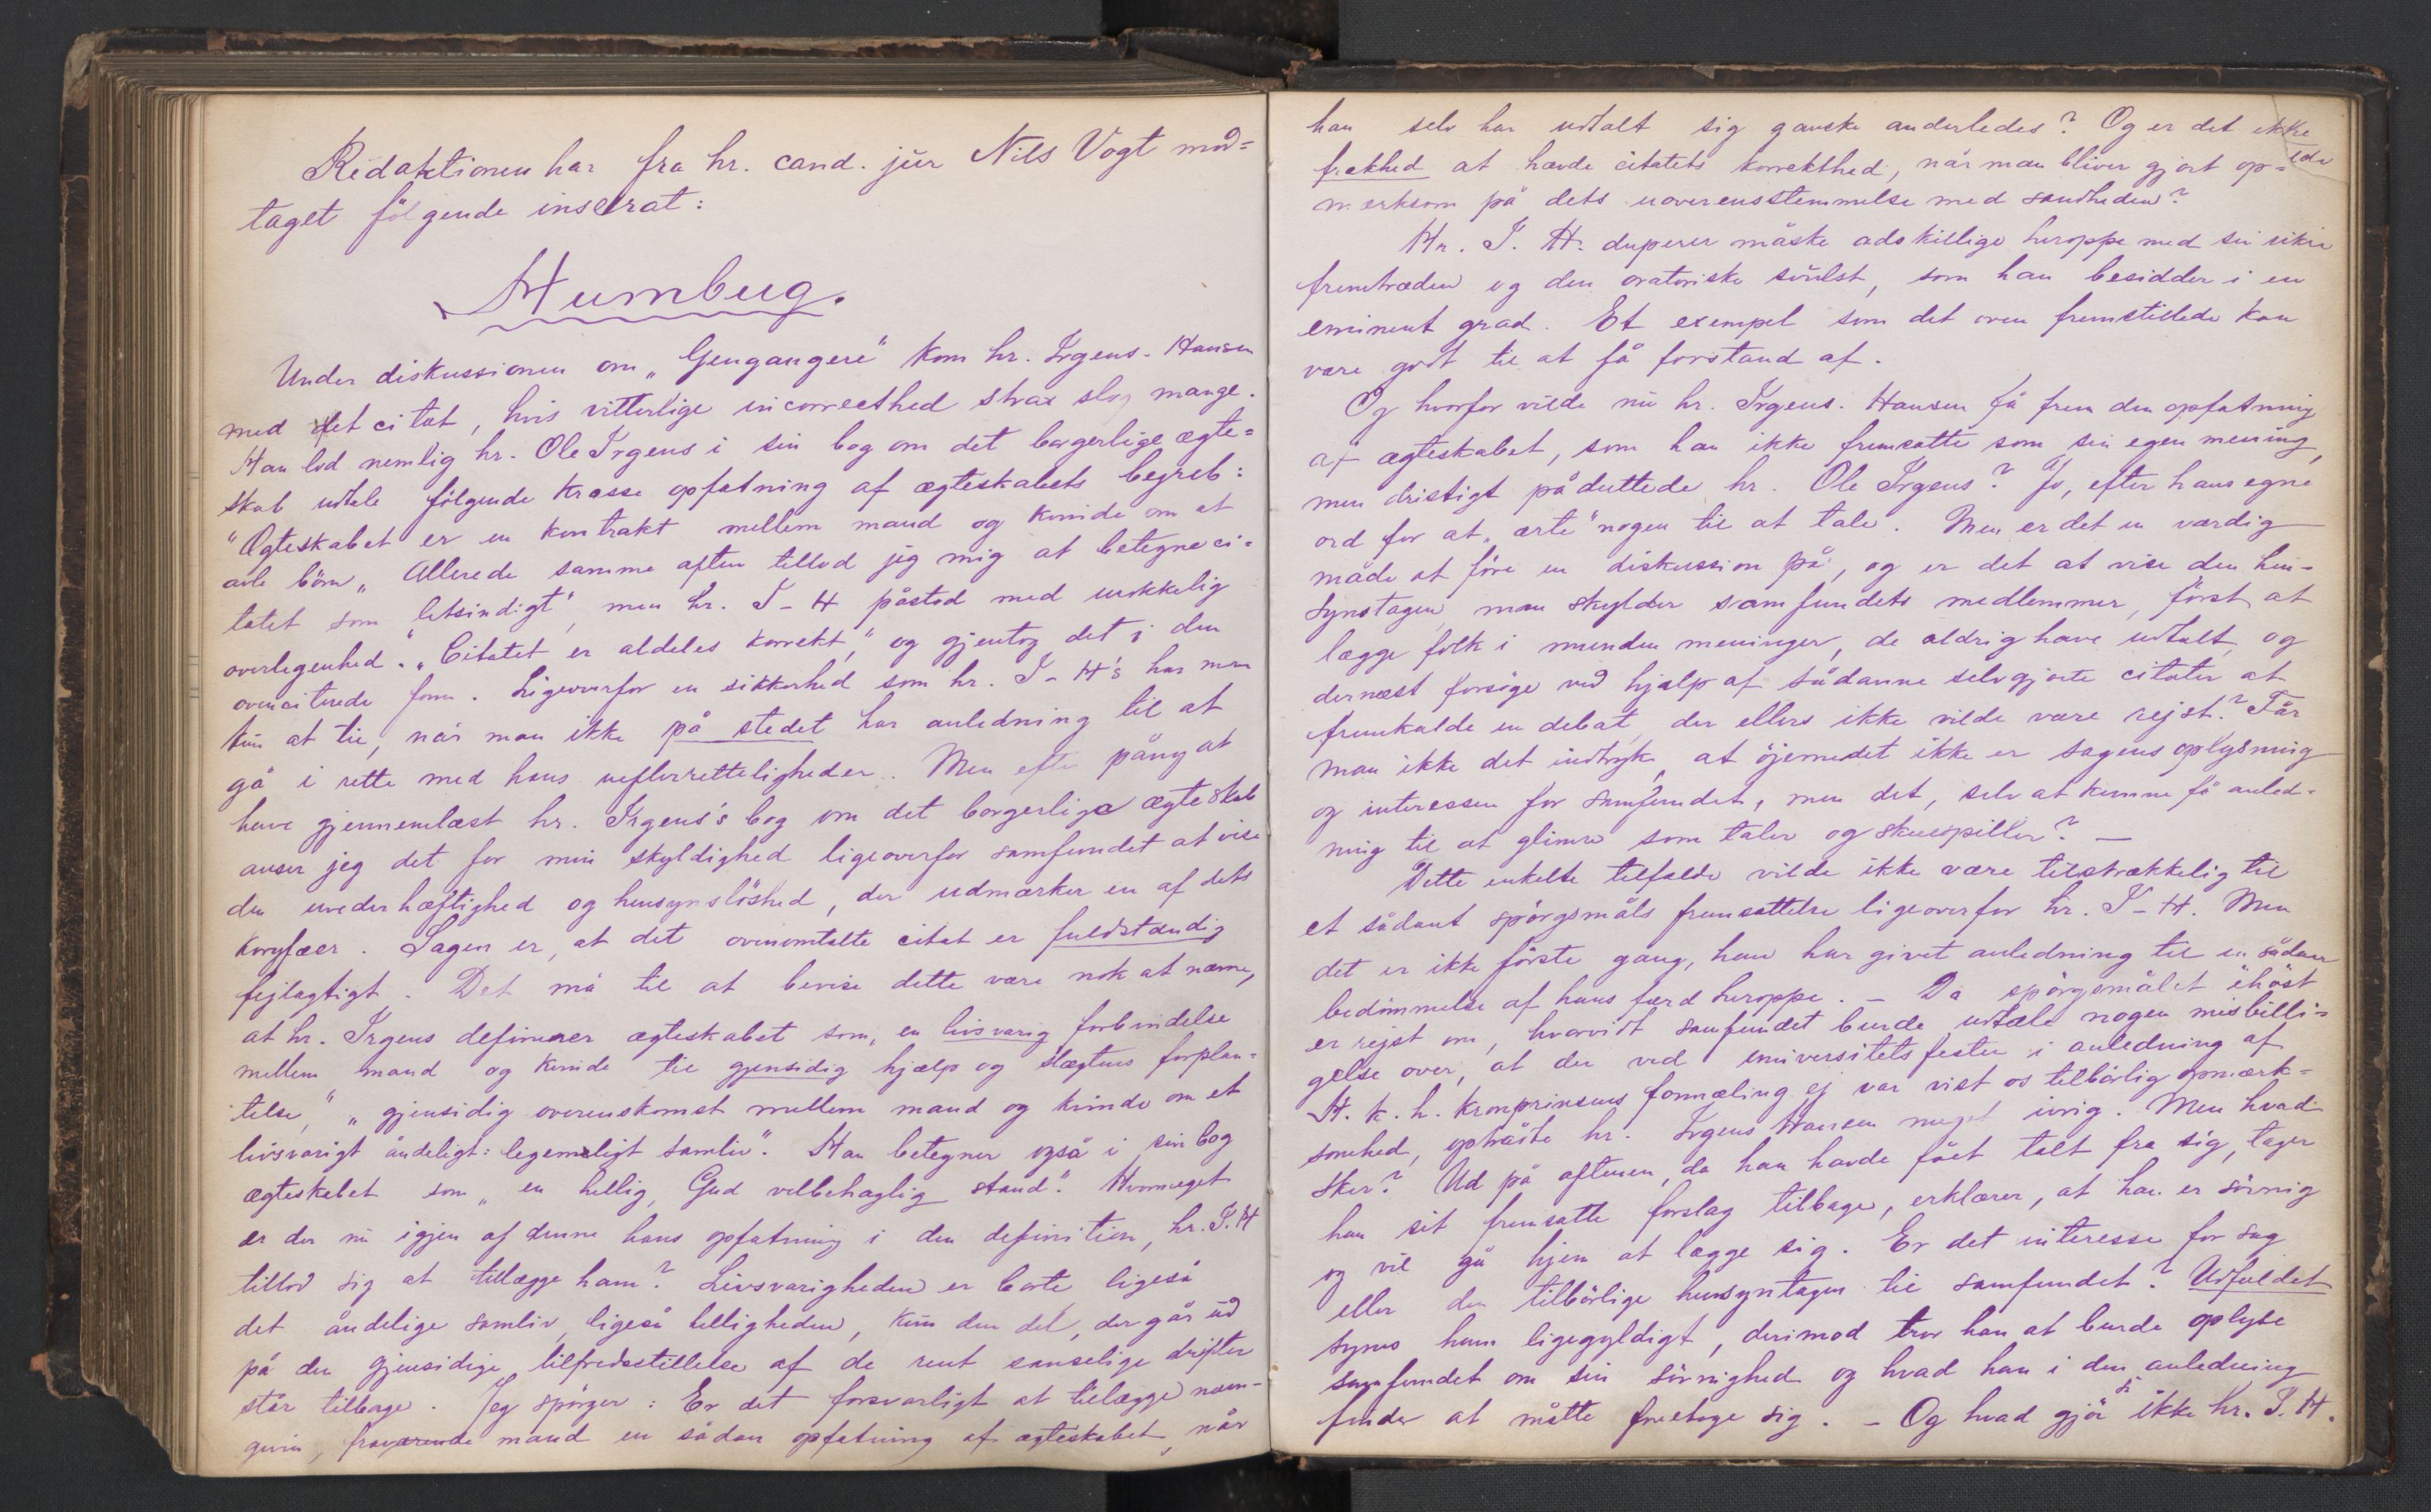 Redaktionen har fra hr. cand. jur Nils Vogt mod=
taget følgende inserat:
Humbug.
Under diskussionen om „Gengangere" kom hr. Irgens-Hansen
med det citat, hvis vitterlige incorrecthed strax slog mange.
Han lod nemlig hr. Ole Irgens i sin bog om det borgerlige ægte=
skab udtale følgende krasse opfatning af ægteskabets begreb:
"Ægteskabet er en kontrakt mellem mand og kvinde om at
avle börn„ Allerede samme aften tillod jeg mig at betegne ci=
tatet som letsindigt, men hr. I-H påstod med urokkelig
overlegenhed. „Citatet er aldeles korrekt," og gjentog det i den
ovenciterede form. Ligeoverfor en sikkerhed som hr. I-H's har man
kun at tie, når man ikke på stedet har anledning til at
gå i rette med hans uefterretteligheder. Men efter påny at
have gjennemlæst hr. Irgens's bog om det borgerlige ægteskab
anser jeg det for min skyldighed ligeoverfor samfundet at vise
den uvederhæftighed og hensynsløshed, der udmærker en af dets
koryfæer. Sagen er, at det ovenomtalte citat er fuldstændig
fejlagtigt. Det må til at bevise dette være nok at nævne,
at hr. Irgens definerer ægteskabet som „en livsvarig forbindelse
mellem mand og kvinde til gjensidig hjælp og slægtens forplan=
telse," „gjensidig overenskomst mellem mand og kvinde om et
livsvarigt åndeligt=legemeligt samliv". Han betegner også i sin bog
ægteskabet som „en hellig, Gud velbehagelig stand". Hvormeget
er der nu igjen af denne hans opfatning i den definition, hr. I.H
tillod sig at tillægge ham? Livsvarigheden er borte ligeså
det åndelige samliv, ligeså helligheden, kun den del, der går ud
på den gjensidige tilfredsstillelse af de rent sanselige drifter
står tilbage. Jeg spörger: Er det forsvarligt at tillægge navn-
given, fraværende mand en sådan opfatning af ægteskabet, når
han selv har udtalt sig ganske anderledes? Og er det ikke
frækhed at hævde citatets korrekthed, når man bliver gjort op=
mærksom på dets uoverensstemmelse med sandheden?
Hr. I. H. duperer måske adskillige heroppe med sin sikre
fremtræden og den oratoriske svulst, som han besidder i en
eminent grad. Et exempel som det oven fremstillede kan
være godt til at få forstand af.
Og hvorfor vilde nu hr. Irgens-Hansen få frem den opfatning
af ægteskabet, som han ikke fremsatte som sin egen mening,
men dristigt påduttede hr. Ole Irgens? Jo, efter hans egne
ord for at „ærte" nogen til at tale. Men er det en værdig
måde at före en diskussion på, og er det at vise den hen-
syntagen, man skylder samfundets medlemmer, först at
lægge folk i munden meninger, de aldrig have udtalt, og
dernæst forsöge ved hjælp af sådanne selvgjorte citater at
fremkalde en debat, der ellers ikke vilde være rejst? Får
man ikke det indtryk, at öjemedet ikke er sagens oplysning
og interessen for samfundet, men det, selv at kunne få anled-
ning til at glimre som taler og skuespiller? —
Dette enkelte tilfælde vilde ikke være tilstrækkelig til
et sådant spörgsmåls fremsættelse ligeoverfor hr. I-H. Men
det er ikke förste gang, han har givet anledning til en sådan
bedömmelse af hans færd heroppe. — Da spörgsmålet ihöst
er rejst om, hvorvidt samfundet burde udtale nogen misbilli=
gelse over, at der ved universitetsfesten i anledning af
H. k. h. kronprinsens formæling ej var vist os tilbörlig opmærk=
somhed, optrådte hr. Irgens Hansen meget ivrig. Men hvad
sker? Ud på aftenen, da han havde fået talt fra sig, tager
han sit fremsatte forslag tilbage, erklærer, at han er sövnig
og vil gå hjem at lægge sig. Er det interesse for sag
eller den tilbörlige hensyntagen til samfundet? Udfaldet
synes ham ligegyldigt, derimod tror han at burde oplyse
samfundet om sin sövnighed og hvad han i den anledning
finder at måtte foretage sig. — Og hvad gjör ikke hr. I. H.